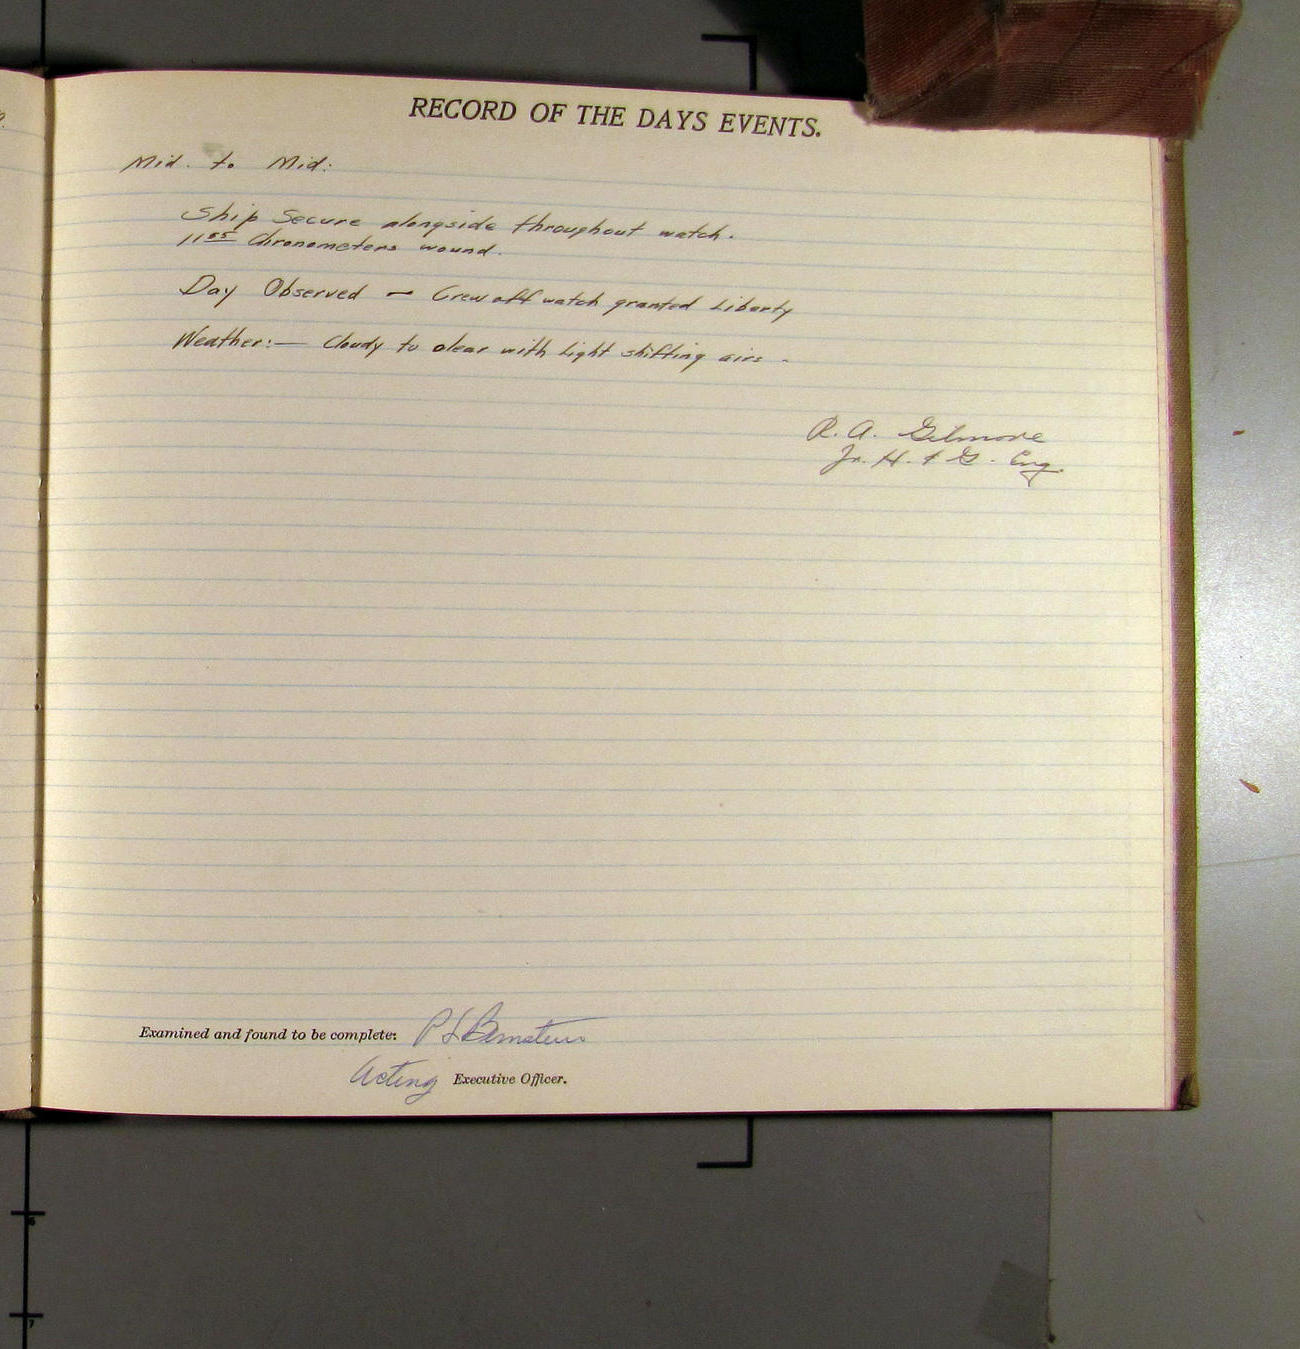 RECORD OF THE DAYS EVENTS.
Mid. to Mid:
Ship Secure alongside throughout watch.
1105 Chronometers wound.
Day Observed — Crew off watch granted Liberty
Weather:— Cloudy to clear with light shifting airs -
R. A. Gilmore
Jr. H. & G. Eng.
Examined and found to be complete: P L Bernstein
Acting Executive Officer.
6
7